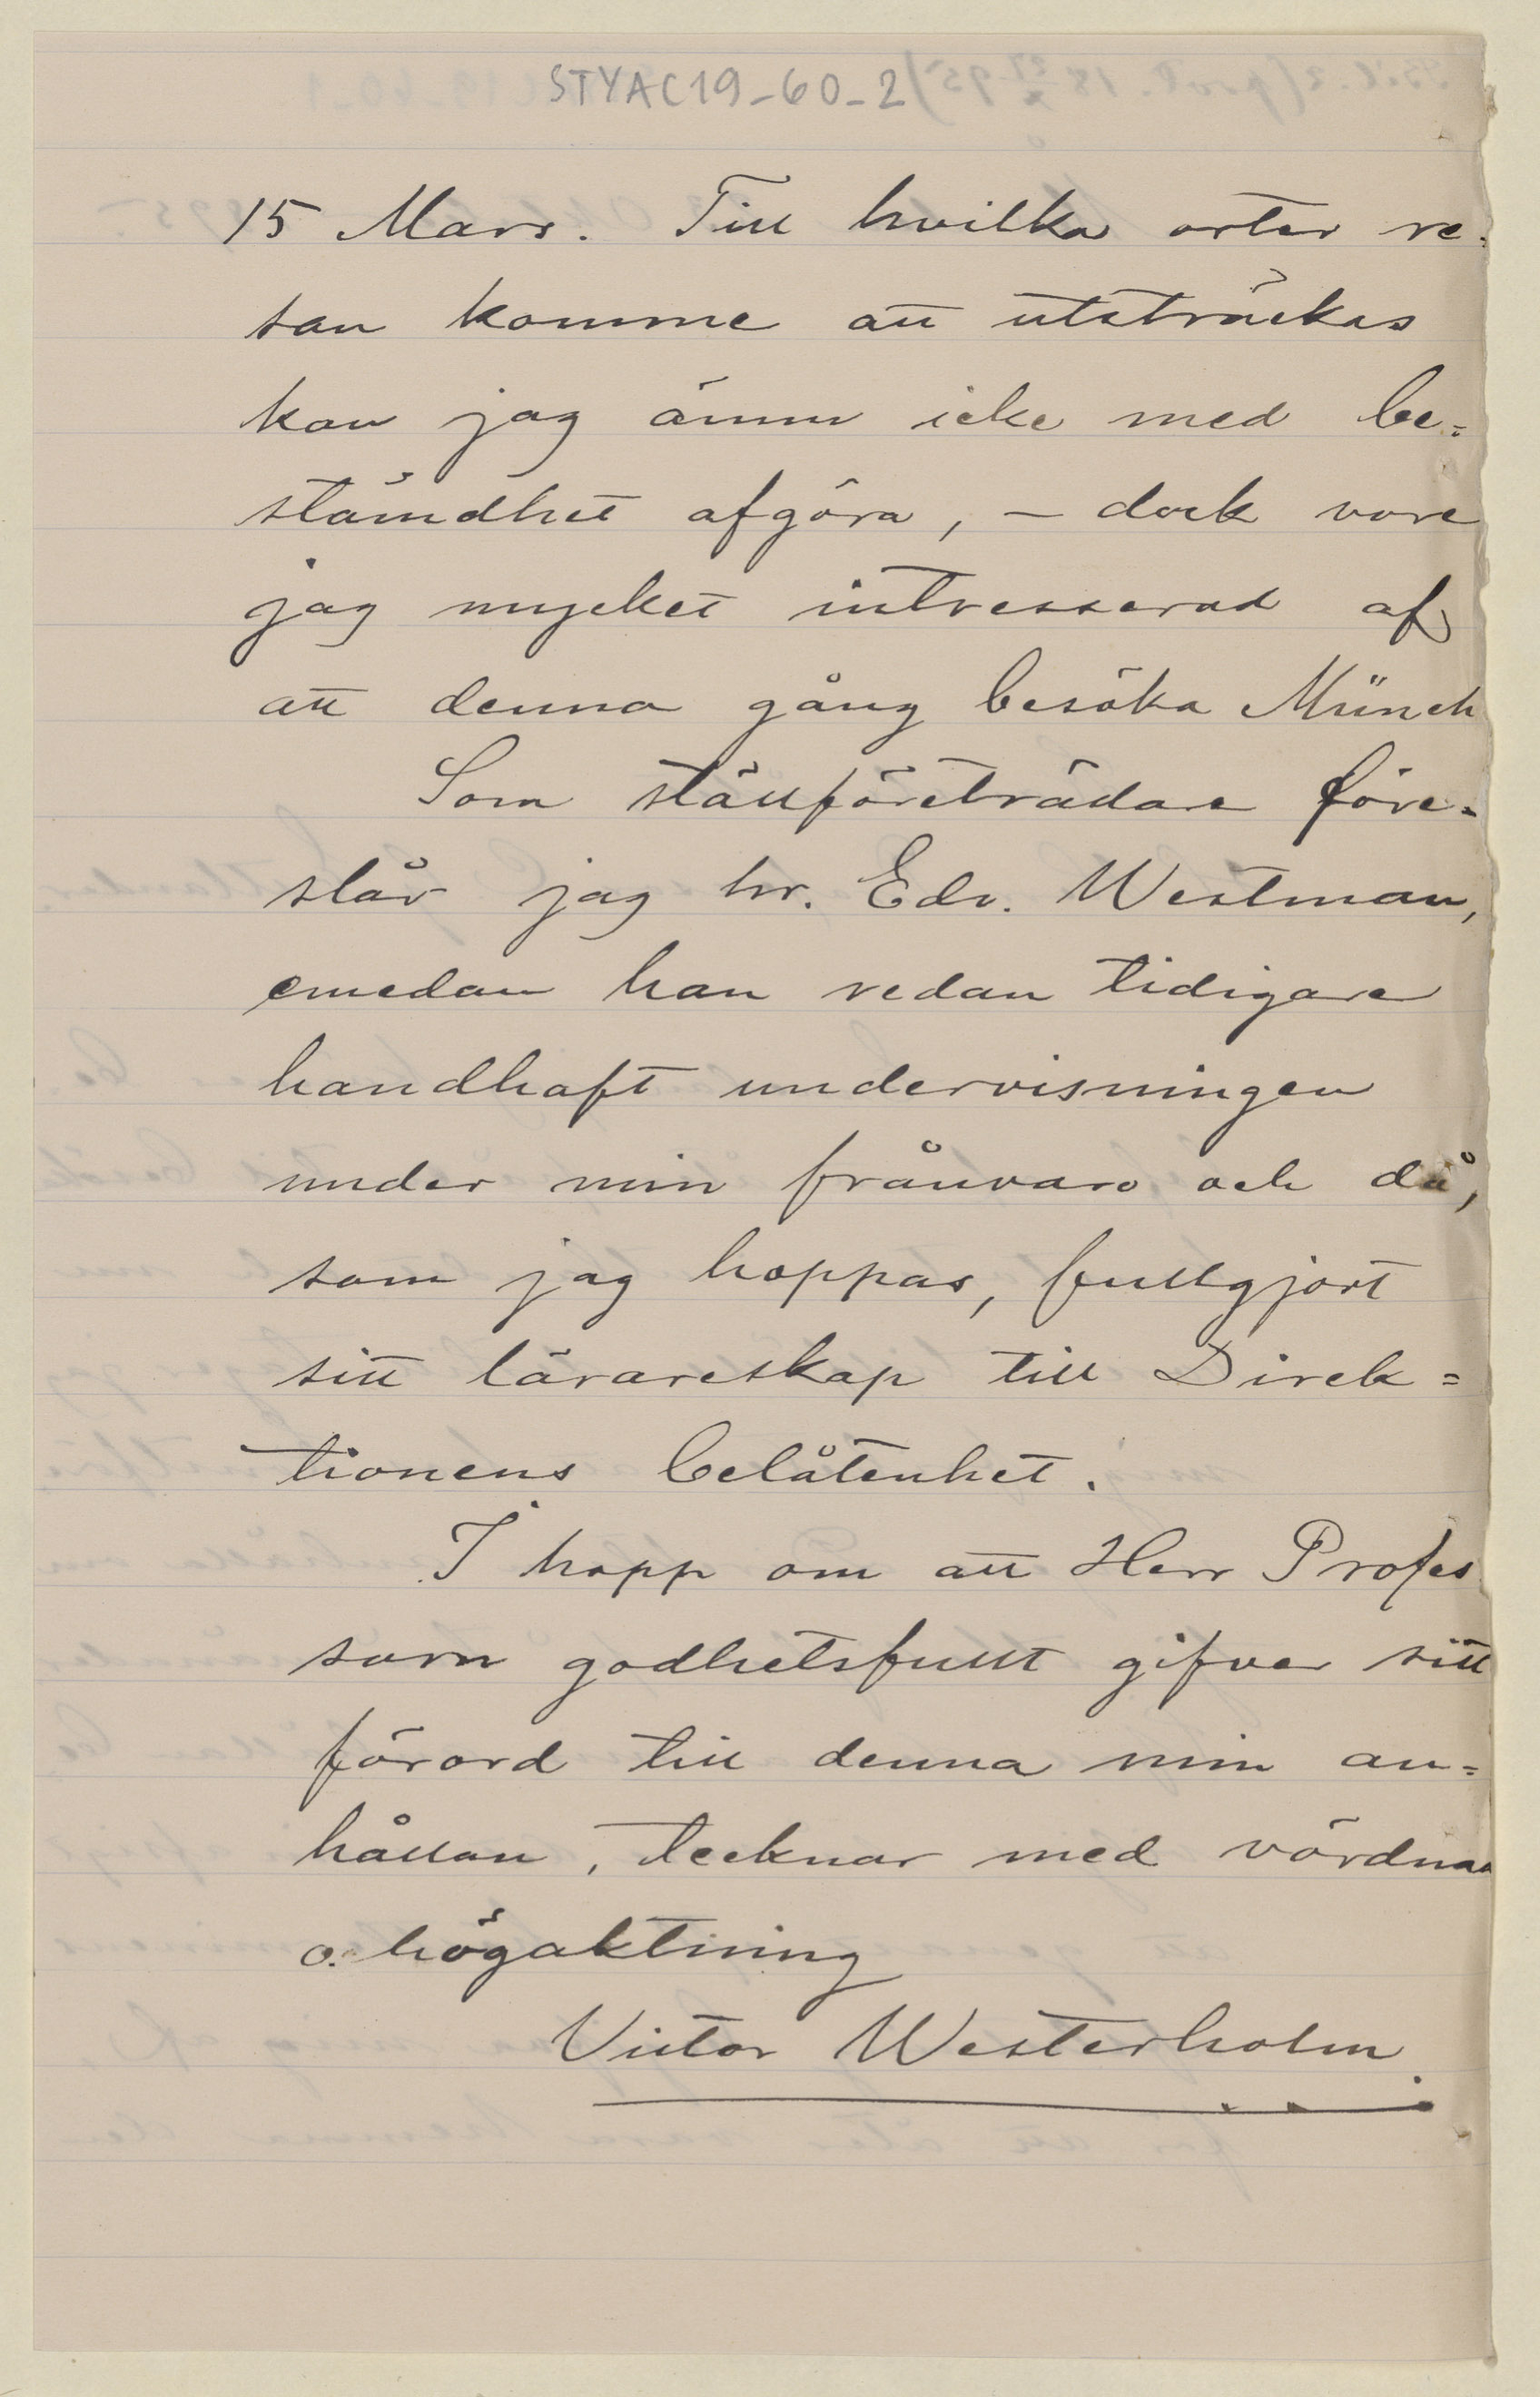 STYAC19-60-2
15 Mars. Till hvilka orter re=
san komme att utsträckas
kan jag ännu icke med be=
stämdhet afgöra, – dock vore
jag mycket intresserad af
att denna gång besöka Münch
Som ställföreträdare före=
slår jag hr. Edv. Westman,
emedan han redan tidigare
handhaft undervisningen
under min frånvaro och då,
som jag hoppas, fullgjort
sitt lärareskap till Direk=
tionens belåtenhet.
I hopp om att Herr Profes
sorn godhetsfullt gifver sitt
förord till denna min an=
hållan, tecknar med vördna
o. högaktning
Victor Westerholm